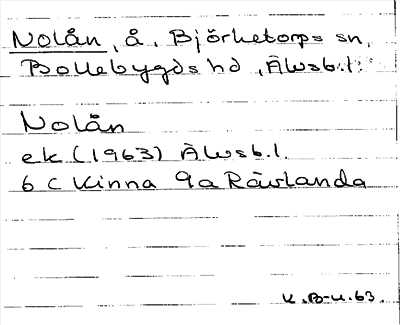 Nolån, å, Björketorps sn,
Bollebygds hd, Älvsb.l.
Nolån
ek (1963) Älvsb.l.
6 C Kinna 9a Rävlanda
K.B-u.63.